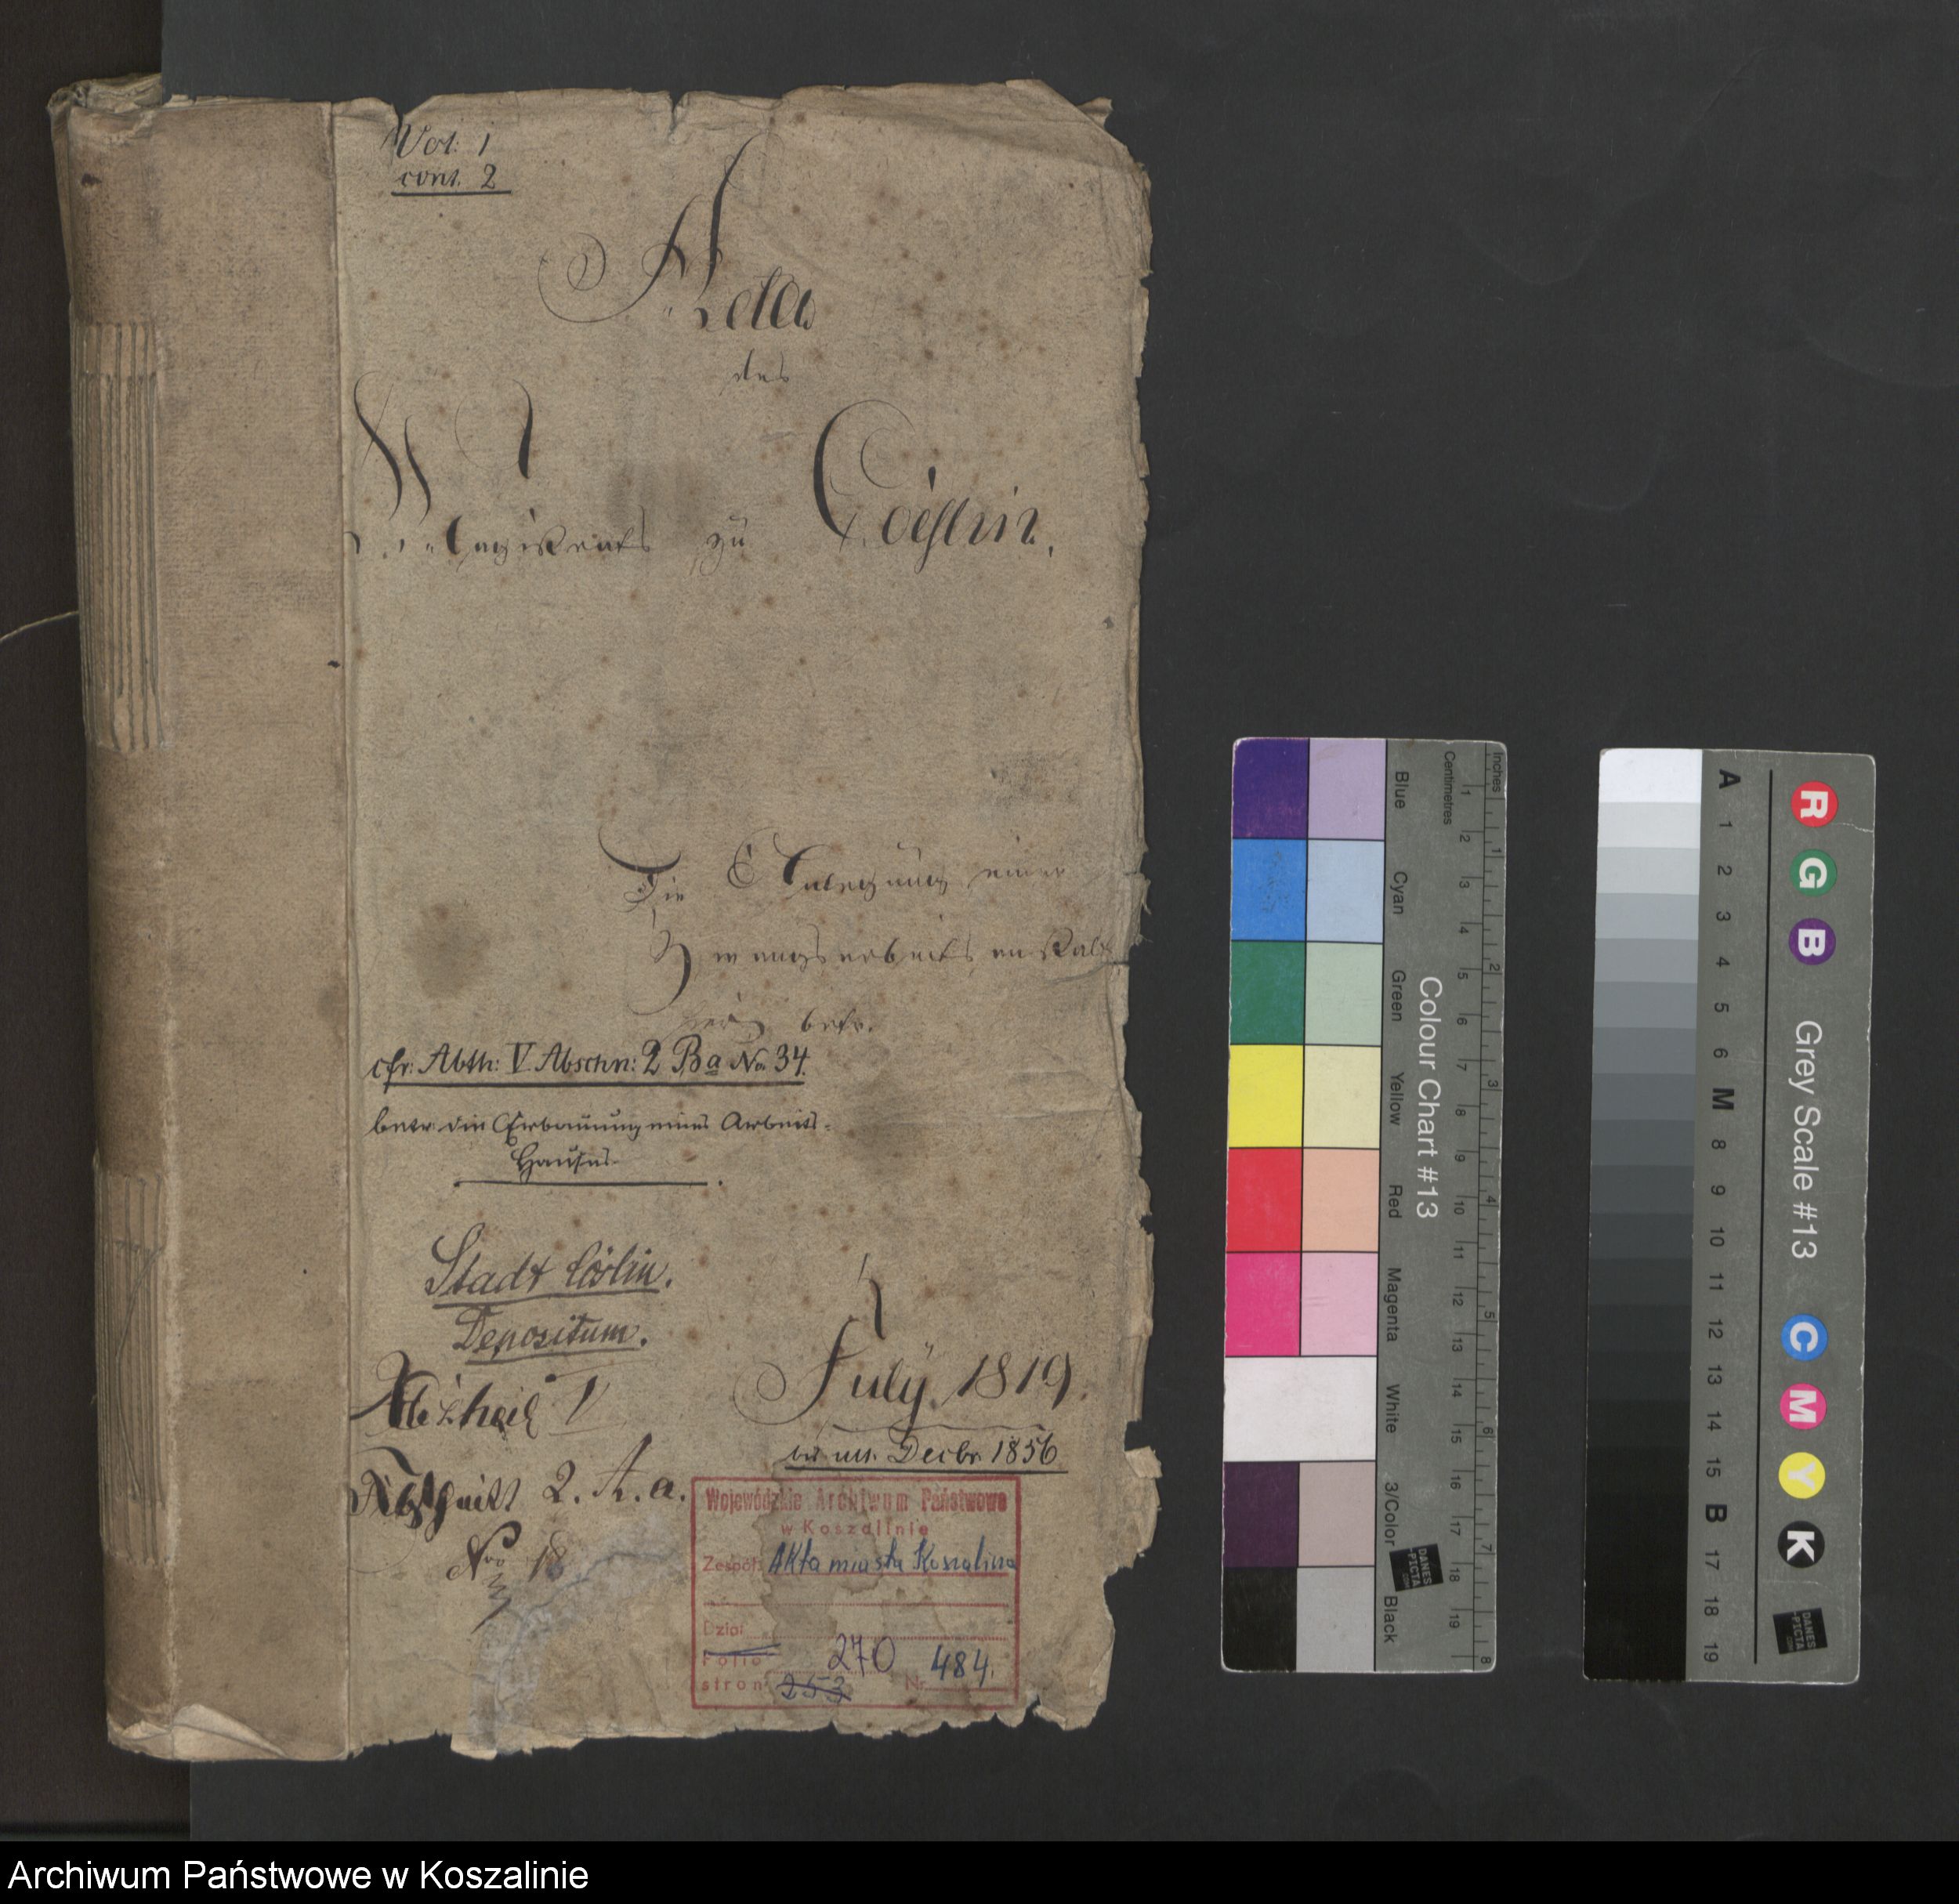 Vol: 1
cont. 2
Acta
des
Magistrats zu Coeslin.
Die Anlegung einer
Zwangsarbeitsanstalt
hier betr.
cfr: Abth: V. Abschn: 2 Ba No 34.
betr. die Erbauung eines Arbeits-
Hauses.
Stadt Cöslin.
Depositum.
Abtheil V
July. 1819.
bis ult. Decbr. 1856
Abschnitt 2. A. a.
Nro 18
Wojewódzkie Archiwum Państwowe
w Koszalinie
Zespół: Akta miasta Koszalina
Dział
Folio 270
stron 253 Nr. 484.
Inches
Centimetres
1 2 3 4 5 6 7 8 9 10 11 12 13 14 15 16 17 18 19
1 2 3 4 5 6 7 8
Colour Chart #13
Blue
Cyan
Green
Yellow
Red
Magenta
White
3/Color
Black
DANES
-PICTA
.COM
R G B
Grey Scale #13
C M Y K
A 1 2 3 4 5 6 M 8 9 10 11 12 13 14 15 B 17 18 19
DANES
-PICTA
.COM
Archiwum Państwowe w Koszalinie